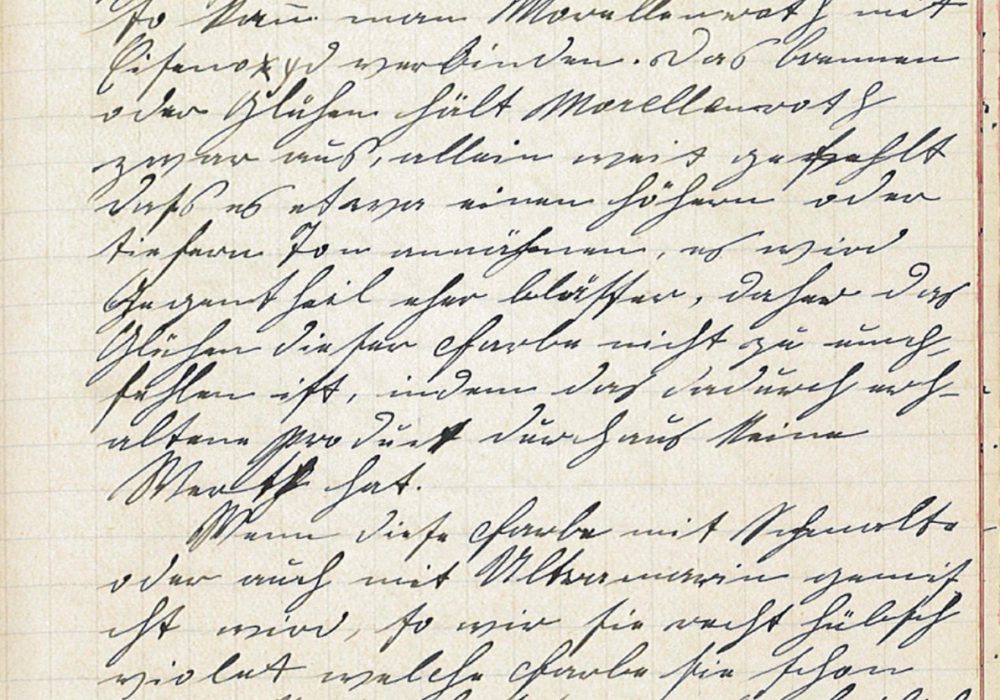 so kan̄ man Morellenroth mit
Eisenoxyd verbinden. Das brennen
oder Glühen hält Morellenroth
zwar aus, allein weit gefehlt
daſs es etwa einen höhern oder
tiefern Ton annähmen, es wird
Gegentheil eher bläſser, daher das
Glühen dieser Farbe nicht zu
fehlen ist, indem das dadurch erh-
altene Product durchaus keine
Werth hat.
Wenn diese Farbe mit Schmalte
oder auch mit Ultramarin gemis
cht wird, so wir sie recht hübsch
violet welche Farbe sie schon